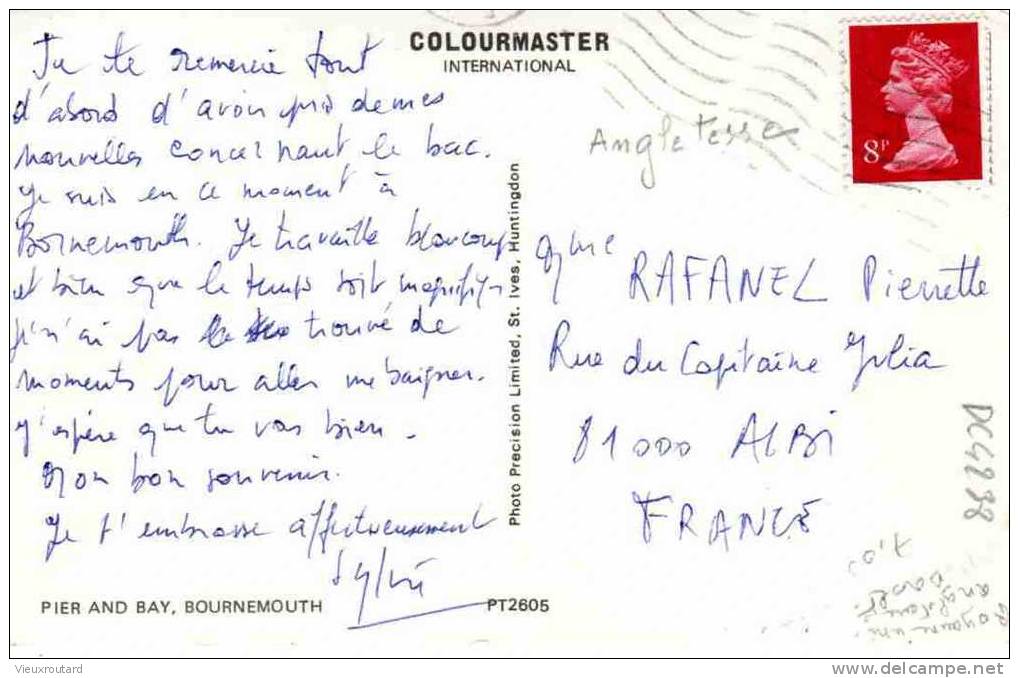 COLOURMASTER
INTERNATIONAL
8P
Angleterre
Je te remercie tout
d'abord d'avoir pris de mes
nouvelles concernant le bac.
Je suis en ce moment à
Bornemouth. Je travaille beaucoup
et bien que le temps soit magnifique
je n'ai pas trouvé de
moments pour aller me baigner.
J'espère que tu vas bien.
Mon bon souvenir.
Je t'embrasse affectueusement
Sylvie
PIER AND BAY, BOURNEMOUTH
PT2605
Photo Precision Limited, St. Ives, Huntingdon
Mme
RAFANEL Pierrette
Rue du Capitaine Julia
81000 ALBi
FRANCE
DC4298
1,00
Royaume uni
angleterre
Vieuxroutard
delcampe.net